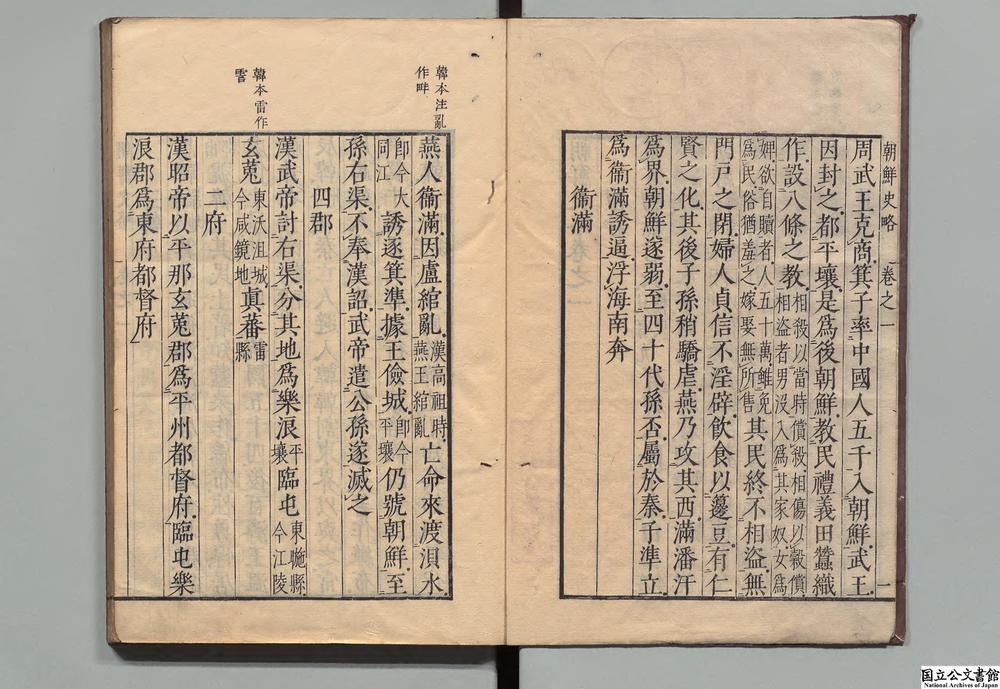 朝鮮史略 卷之一 一
周武王克商箕子率中國人五千入朝鮮武王
因封之都平壤是爲後朝鮮教民禮義田蠶織
作設八條之教相殺以當時償殺相傷以穀償
相盜者男沒入爲其家奴女爲
婢欲自贖者人五十萬雖免
爲民俗猶羞之嫁娶無所售其民終不相盜無
門戸之閉婦人貞信不淫辟飲食以籩豆有仁
賢之化其後子孫稍驕虐燕乃攻其西滿潘汗
爲界朝鮮遂弱至四十代孫否屬於秦子準立
爲衞滿誘逼浮海南奔
衞滿
韓本注亂
作畔
燕人衞滿因盧綰亂漢高祖時
燕王綰亂亡命來渡浿水
卽今大
同江誘逐箕準據王儉城卽今
平壤仍號朝鮮至
孫右渠不奉漢詔武帝遣公孫遂滅之
四郡
韓本雷作
霅
漢武帝討右渠分其地爲樂浪平
壤臨屯東暆縣
今江陵
玄菟東沃沮城
今咸鏡地眞蕃雷
縣
二府
漢昭帝以平那玄菟郡爲平州都督府臨屯樂
浪郡爲東府都督府
国立公文書館
National Archives of Japan